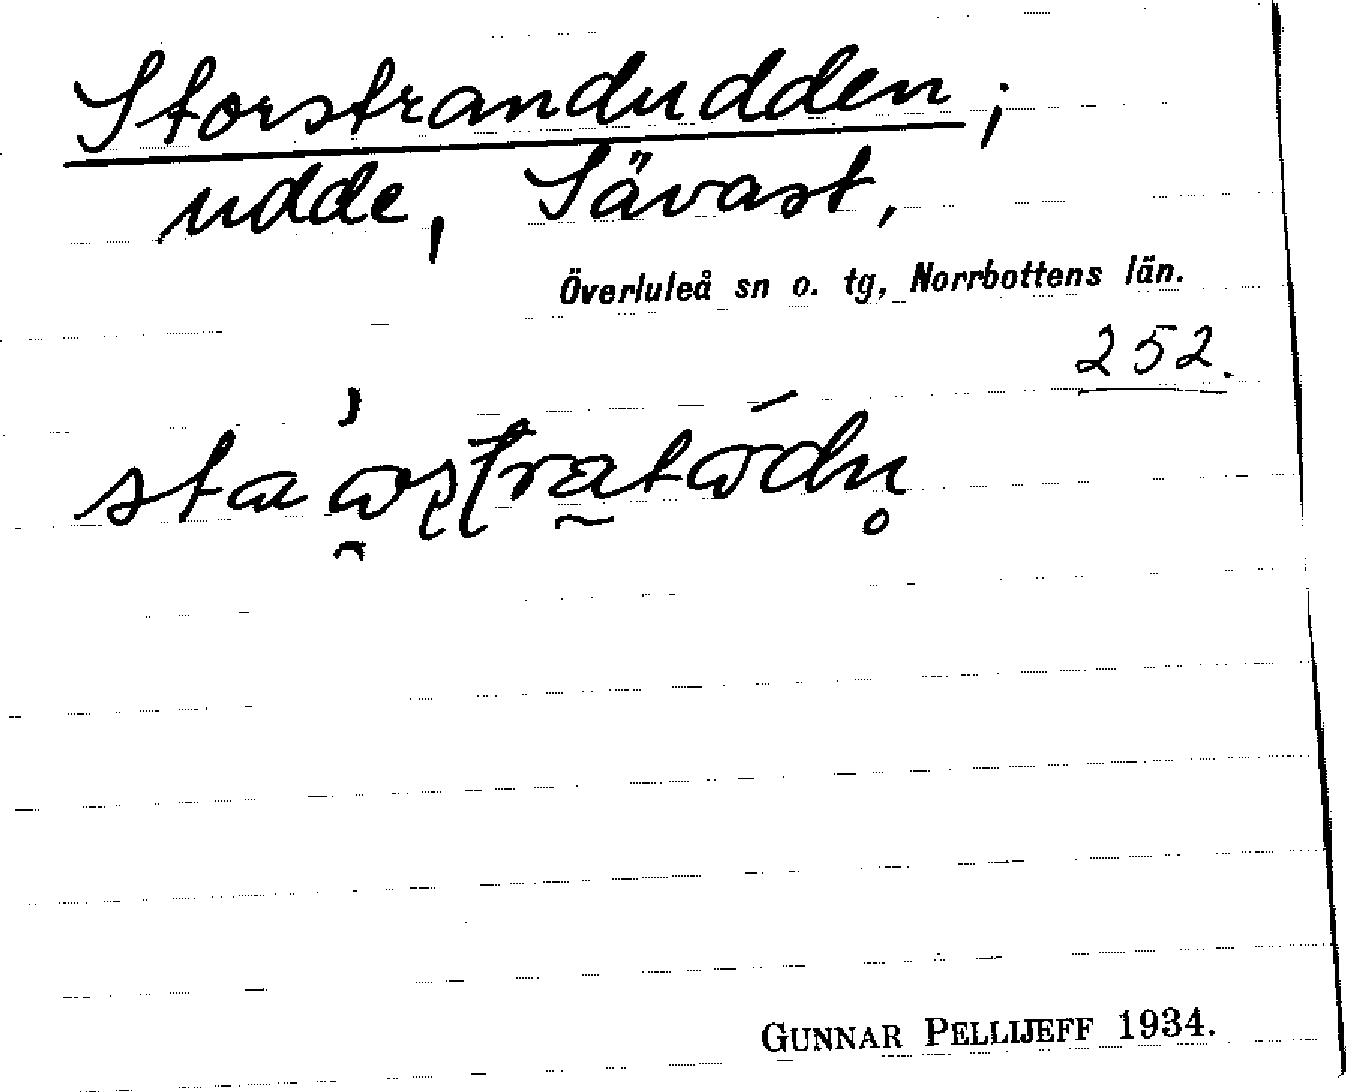 Storstrandudden;
udde, Sävast,
Överluleå sn o. tg, Norrbottens län.
252.
GUNNAR PELLIJEFF 1934.